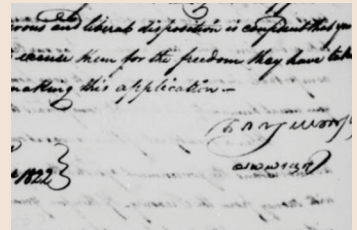 and liberal disposition is confident that you
excuse them for the freedom they have
making this application —
1822